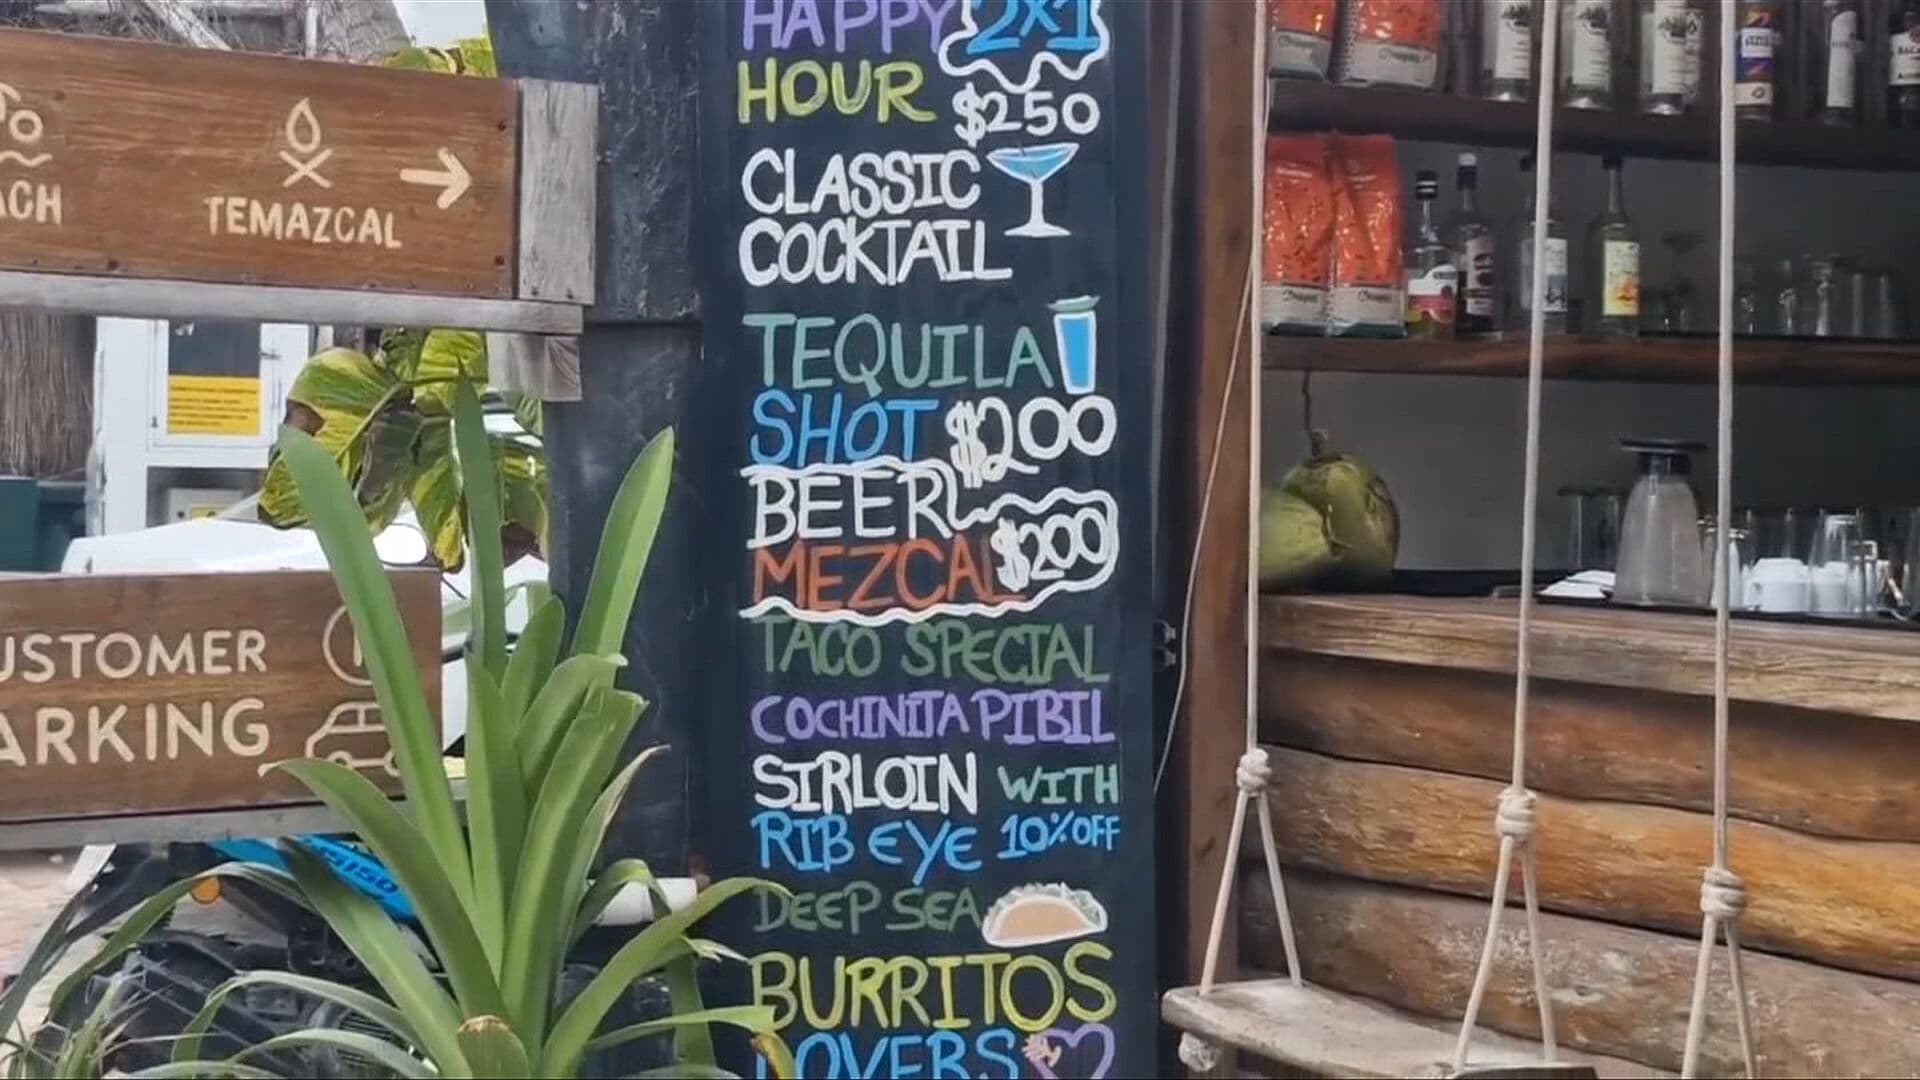 ACH
TEMAZCAL
USTOMER
ARKING
HAPPY 2X1
HOUR $250
CLASSIC
COCKTAIL
TEQUILA
SHOT $200
BEER
MEZCAL $200
TACO SPECIAL
COCHINITA PIBIL
SIRLOIN WITH
RIB EYE 10% OFF
DEEP SEA
BURRITOS
LOVERS